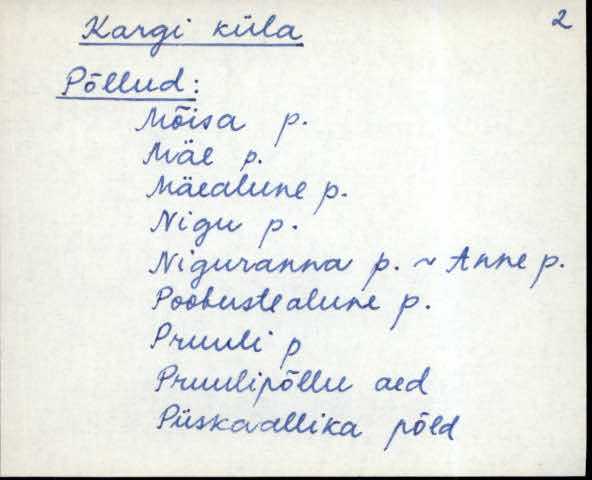 Kargi küla 2
Põllud:
Mõisa p.
Mäe p.
Mäealune p.
Nigu p.
Niguranna p. ~ Anne p.
Poobustealune p.
Pruuli p
Pruulipõllu aed
Püskaallika põld